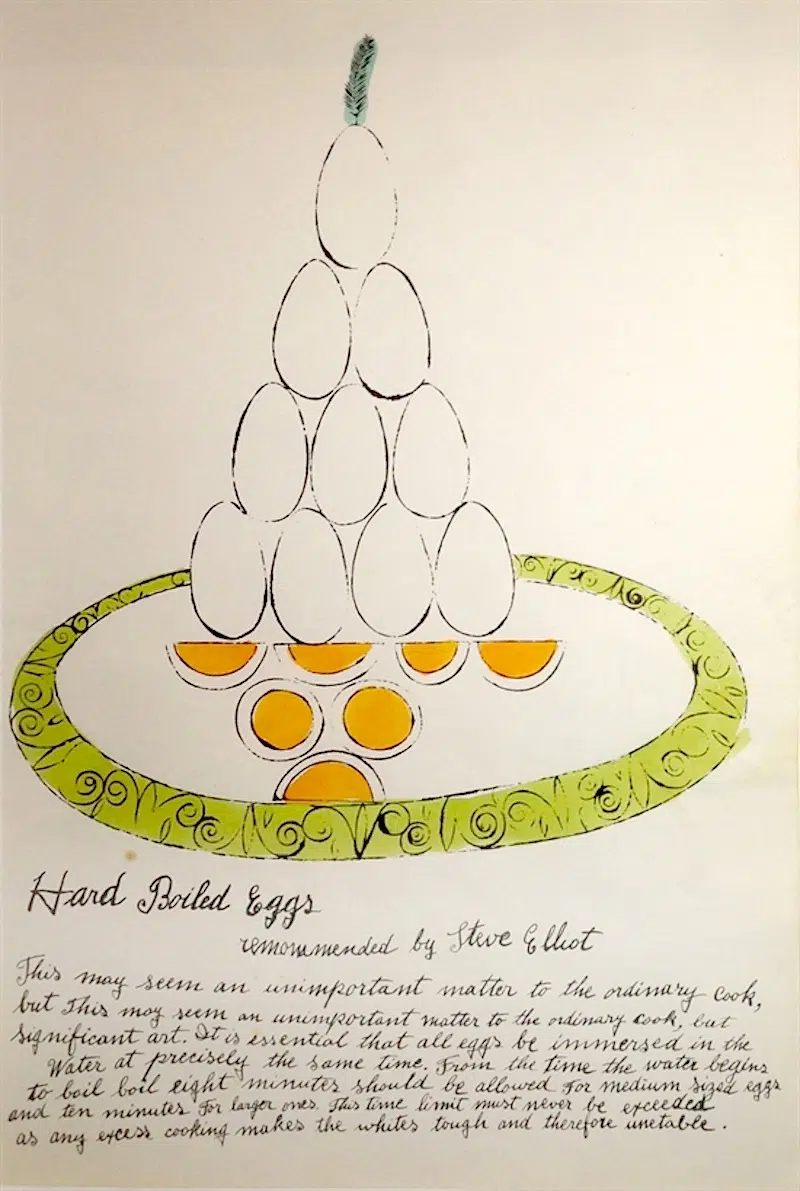 Hard Boiled Eggs
remommended by Steve Elliot
This may seem an unimportant matter to the ordinary cook,
but This may seem an unimportant matter to the ordinary cook, but
significant art. It is essential that all eggs be immersed in the
Water at precisely the same time. From the time the water begins
to boil boil eight minutes should be allowed for medium sized eggs
and ten minutes for larger ones. This time limit must never be exceeded
as any excess cooking makes the whites tough and therefore unetable.